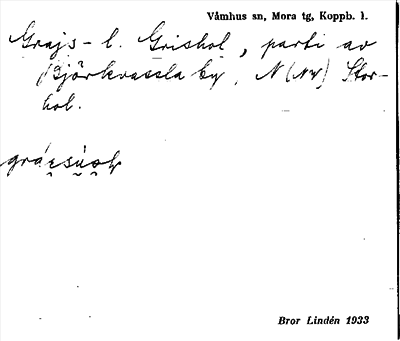 Våmhus sn, Mora tg, Koppb. l.
Grajs- l. Grishol, parti av
Björkvassla by, N (NV) Stor-
hol.
Bror Lindén 1933